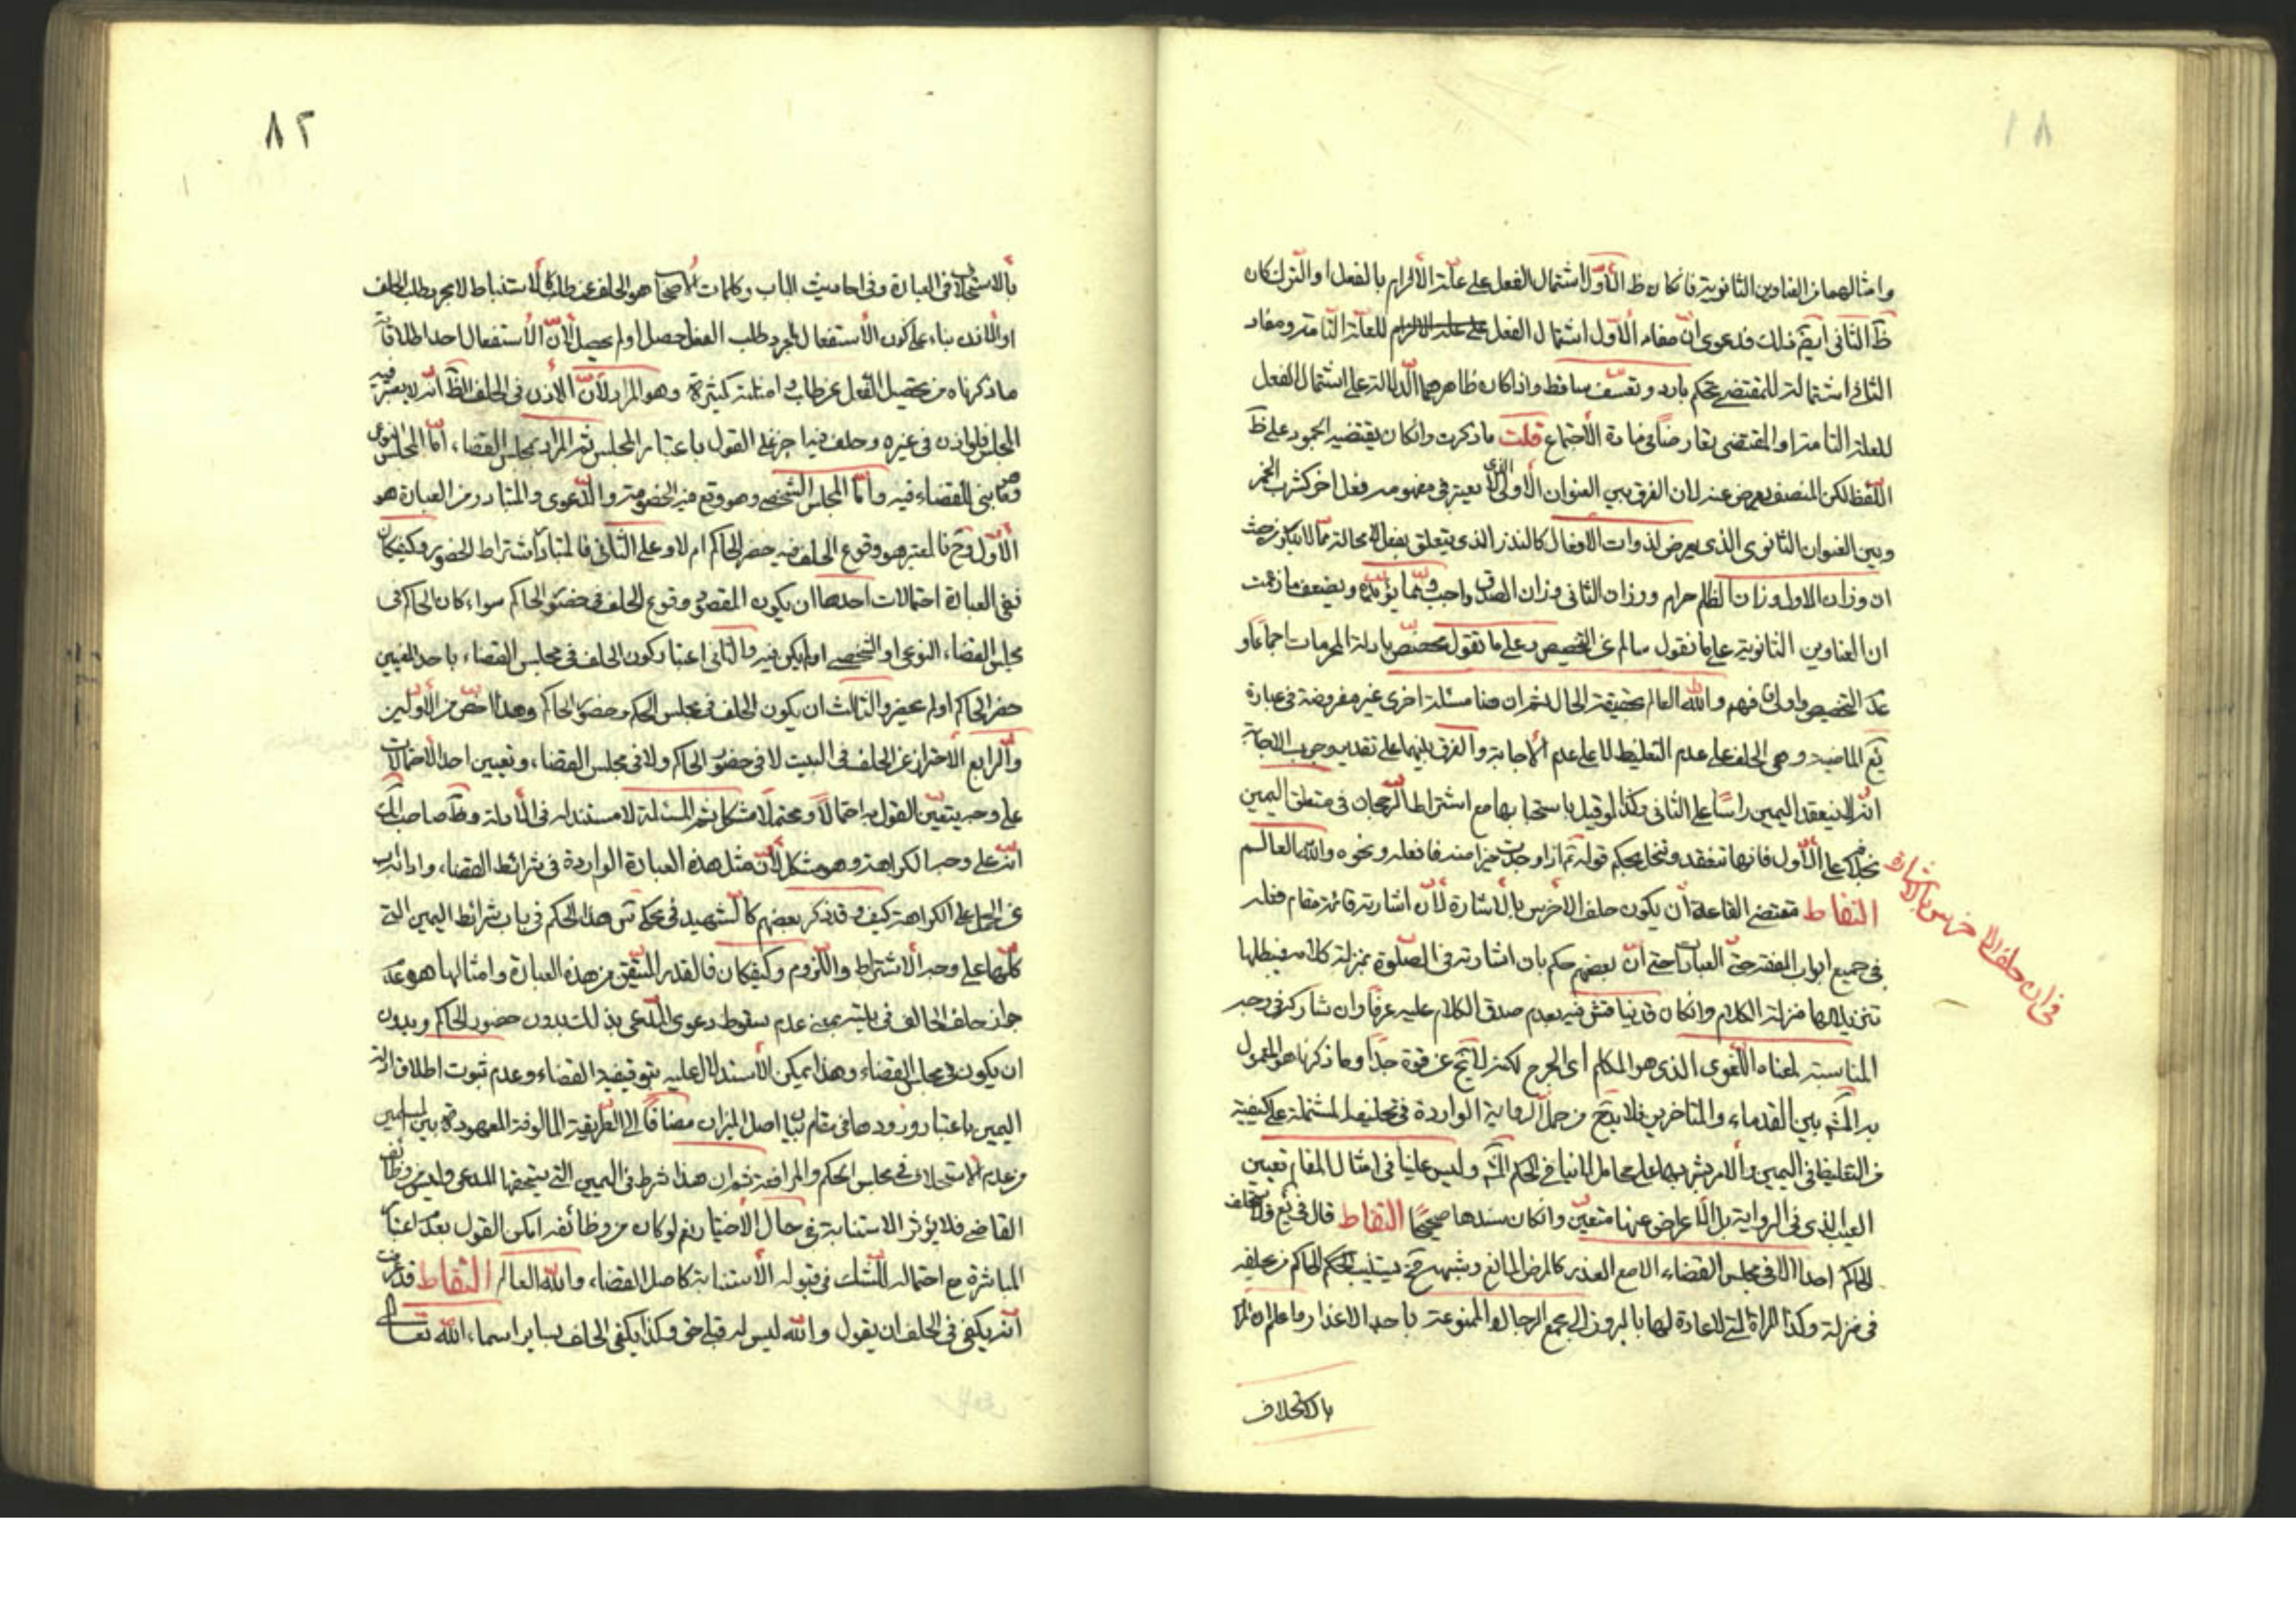 ٨١
وامثالهما من العناوين الثانوية فانكان ظ الأوّل اشتمال الفعل على علّة الألزام بالفعل او الترك كان
ظ الثانى ايضم ذلك فدعوى انّ مفاد الأوّل اشتمال الفعل على علة الالزام للعلّة التامّة ومفاد
الثانى اشتماله للمقتضى تحكم بارد وتعسّف ساقط واذا كان ظاهرهما الدّلالة على اشتمال الفعل
للعلة التامة او المقتضى تعارضا فى مادة الأجتماع قلت ما ذكرت وانكان يقتضيه الجمود على ظ
اللّفظ لكن المنصف يعرض عنه لان الفرق بين العنوان الأولى الذى لا يعتبر فى مفهومه فعل اخر كشرب الخمر
وبين العنوان الثانوى الذى يعرض لذوات الافعال كالنذر الذى يتعلق بفعل لا محالة ممّا لا ينكر من حيث
ان وزان الاول وزان الظلم حرام ووزان الثانى وزان الصدق واجب وممّا يؤيّده ويضعف ما زعمت
ان العناوين الثانوية على ما نقول سالم عن التخصيص وعلى ما تقول مخصّص بادلة المحرمات اجماعا و
عدم التخصيص اولى فافهم والله العالم بحقيقة الحال ثم ان هنا مسئلة اخرى غير مفروضة فى عبارة
يع الماضية وهى الحلف على عدم التغليظ لا على عدم الأجابة والفرق بينهما على تقدير وجوب الاجابة
انّه لا ينعقد اليمين راسًا على الثانى وكذا لو قيل باستحبابها مع اشتراط الرّجحان فى متعلق اليمين
بخلافه على الأوّل فانها تنعقد وتنحل بحكم قوله ع اذا وجدت خيرا منه فافعله ونحوه والله العالم
التقاط مقتضى القاعدة ان يكون حلف الاخرس بالأشارة لأنّ اشارته قائمة مقام فعله
فى جميع ابواب الفقه حتّى العبادات حتى انّ بعضهم حكم بان اشارته فى الصّلوة بمنزلة كلامه فيبطلها
تنزيلا لها منزلة الكلام وانكان قد يناقش فيه بعدم صدق الكلام عليه عرفا وان شاركه فى وجه
المناسبة لمعناه اللّغوى الذى هو المكلم اى الجرح لكنه لا يخ عن قوة جدّا وما ذكرنا هو المعمول
به المشه بين القدماء والمتاخرين فلا بدّ ح من حمل الرواية الواردة فى تحليفه المشتملة على كيفية
من التغليظ فى اليمين والأمر بشربها على محامل لا تنافى الحكم المش وليس علينا فى امثال المقام تعيين
العيب الذى فى الرواية بل الأعراض عنها متعيّن وانكان سندها صحيحًا التقاط قال فى يع ولا يستحلف
الحاكم احدا الا فى مجلس القضاء الا مع العذر كالمرض المانع وشبهه فح يستنيب الحاكم من يحلفه
فى منزله وكذا المراة التى لا عادة لها بالبروز الى مجمع الرجال او الممنوعة باحد الاعذار وما علم ان المراد
بالاستحلاف
فى ان حلف الاخرس بالاشارة
٨٢
بالاستحلاف فى العبارة وفى احاديث الباب وكلمات الأصحاب هو الحلف عن طلب كالأستنباط لا مجرد طلب الحلف
او الأذن بناء على كون الأستفعال لمجرد طلب الفعل حصل او لم يحصل لأنّ الأستفعال احد اطلاقاته
ما ذكرناه من تحصيل الفعل عن طلب وامثلته كثيرة وهو المراد لأنّ الأذن فى الحلف الظّ انّه لا يعتبر فيه
المجلس فلو اذن فى غيره وحلف فيها جزء على القول باعتبار المجلس ثم المراد بمجلس القضاء، امّا المجلس النوعى
وهو ما بنى للقضاء فيه وامّا المجلس الشخصى وهو ما وقع فيه الخصومة والدّعوى والمتبادر من العبارة هو
الأوّل وح فالمعتبر هو وقوع الحلف فيه حضر الحاكم ام لا وعلى الثّانى فالمتبادر اشتراط الحضور وكيفكان
ففى العبارة احتمالات احدها ان يكون المقصود وقوع الحلف فى حضور الحاكم سواء كان الحاكم فى
مجلس القضاء النوعى او الشخصى او لم يكن فيه والثانى اعتبار كون الحلف فى مجلس القضاء باحد المعنيين
حضر الحاكم او لم يحضر والثالث ان يكون الحلف فى مجلس الحكم وحضور الحاكم وهذا اخصّ من الأوّلين
والرابع الأحتراز عن الحلف فى البيت لا فى حضور الحاكم ولا فى مجلس القضاء، وتعيين احد الأحتمالات
على وجه يتعيّن القول به احتمالا ومحتملا مشكل ثم المسئلة لا مستند له فى الأدلة وظّ صاحب الك
انّه على وجه الكراهة وهو مشكل لأنّ مثل هذه العبارة الواردة فى شرائط القضاء، واداب
عن الحمل على الكراهة كيف وقد ذكر بعضهم كالشهيد فى محكى س هذا الحكم فى باب شرائط اليمين التى
كلّها على وجه الأشتراط واللّزوم وكيفكان فالقدر المتيقن من هذه العبارة وامثالها هو عدم
جواز حلف الحالف فى بيته بمعنى عدم سقوط دعوى المدّعى بذلك بدون حضور الحاكم وبدون
ان يكون فى مجلس القضاء وهذا يمكن الأستدلال عليه بتوقيفية القضاء وعدم ثبوت اطلاق ادلة
اليمين باعتبار ورودها فى مقام بيان اصل الميزان مضافًا الى الطريقة المالوفة المعهودة بين المسلمين
من عدم الاستحلاف فى مجلس الحكم والمرافعة ثم ان هذا شرط فى اليمين التى يستحقها المدعى وليس من وظائف
القاضى فلا يؤثر الاستنابة فى حال الأختيار نعم لو كان من وظائفه امكن القول بعدم اعتبار
المباشرة مع احتمال للشّك فى قبوله الأستنابة كاصل القضاء، والله العالم التقاط قد عرفت
انّه يكفى فى الحلف ان يقول والله ليس له قبلى حق وكذا يكفى الحلف بساير اسماء، الله تعالى